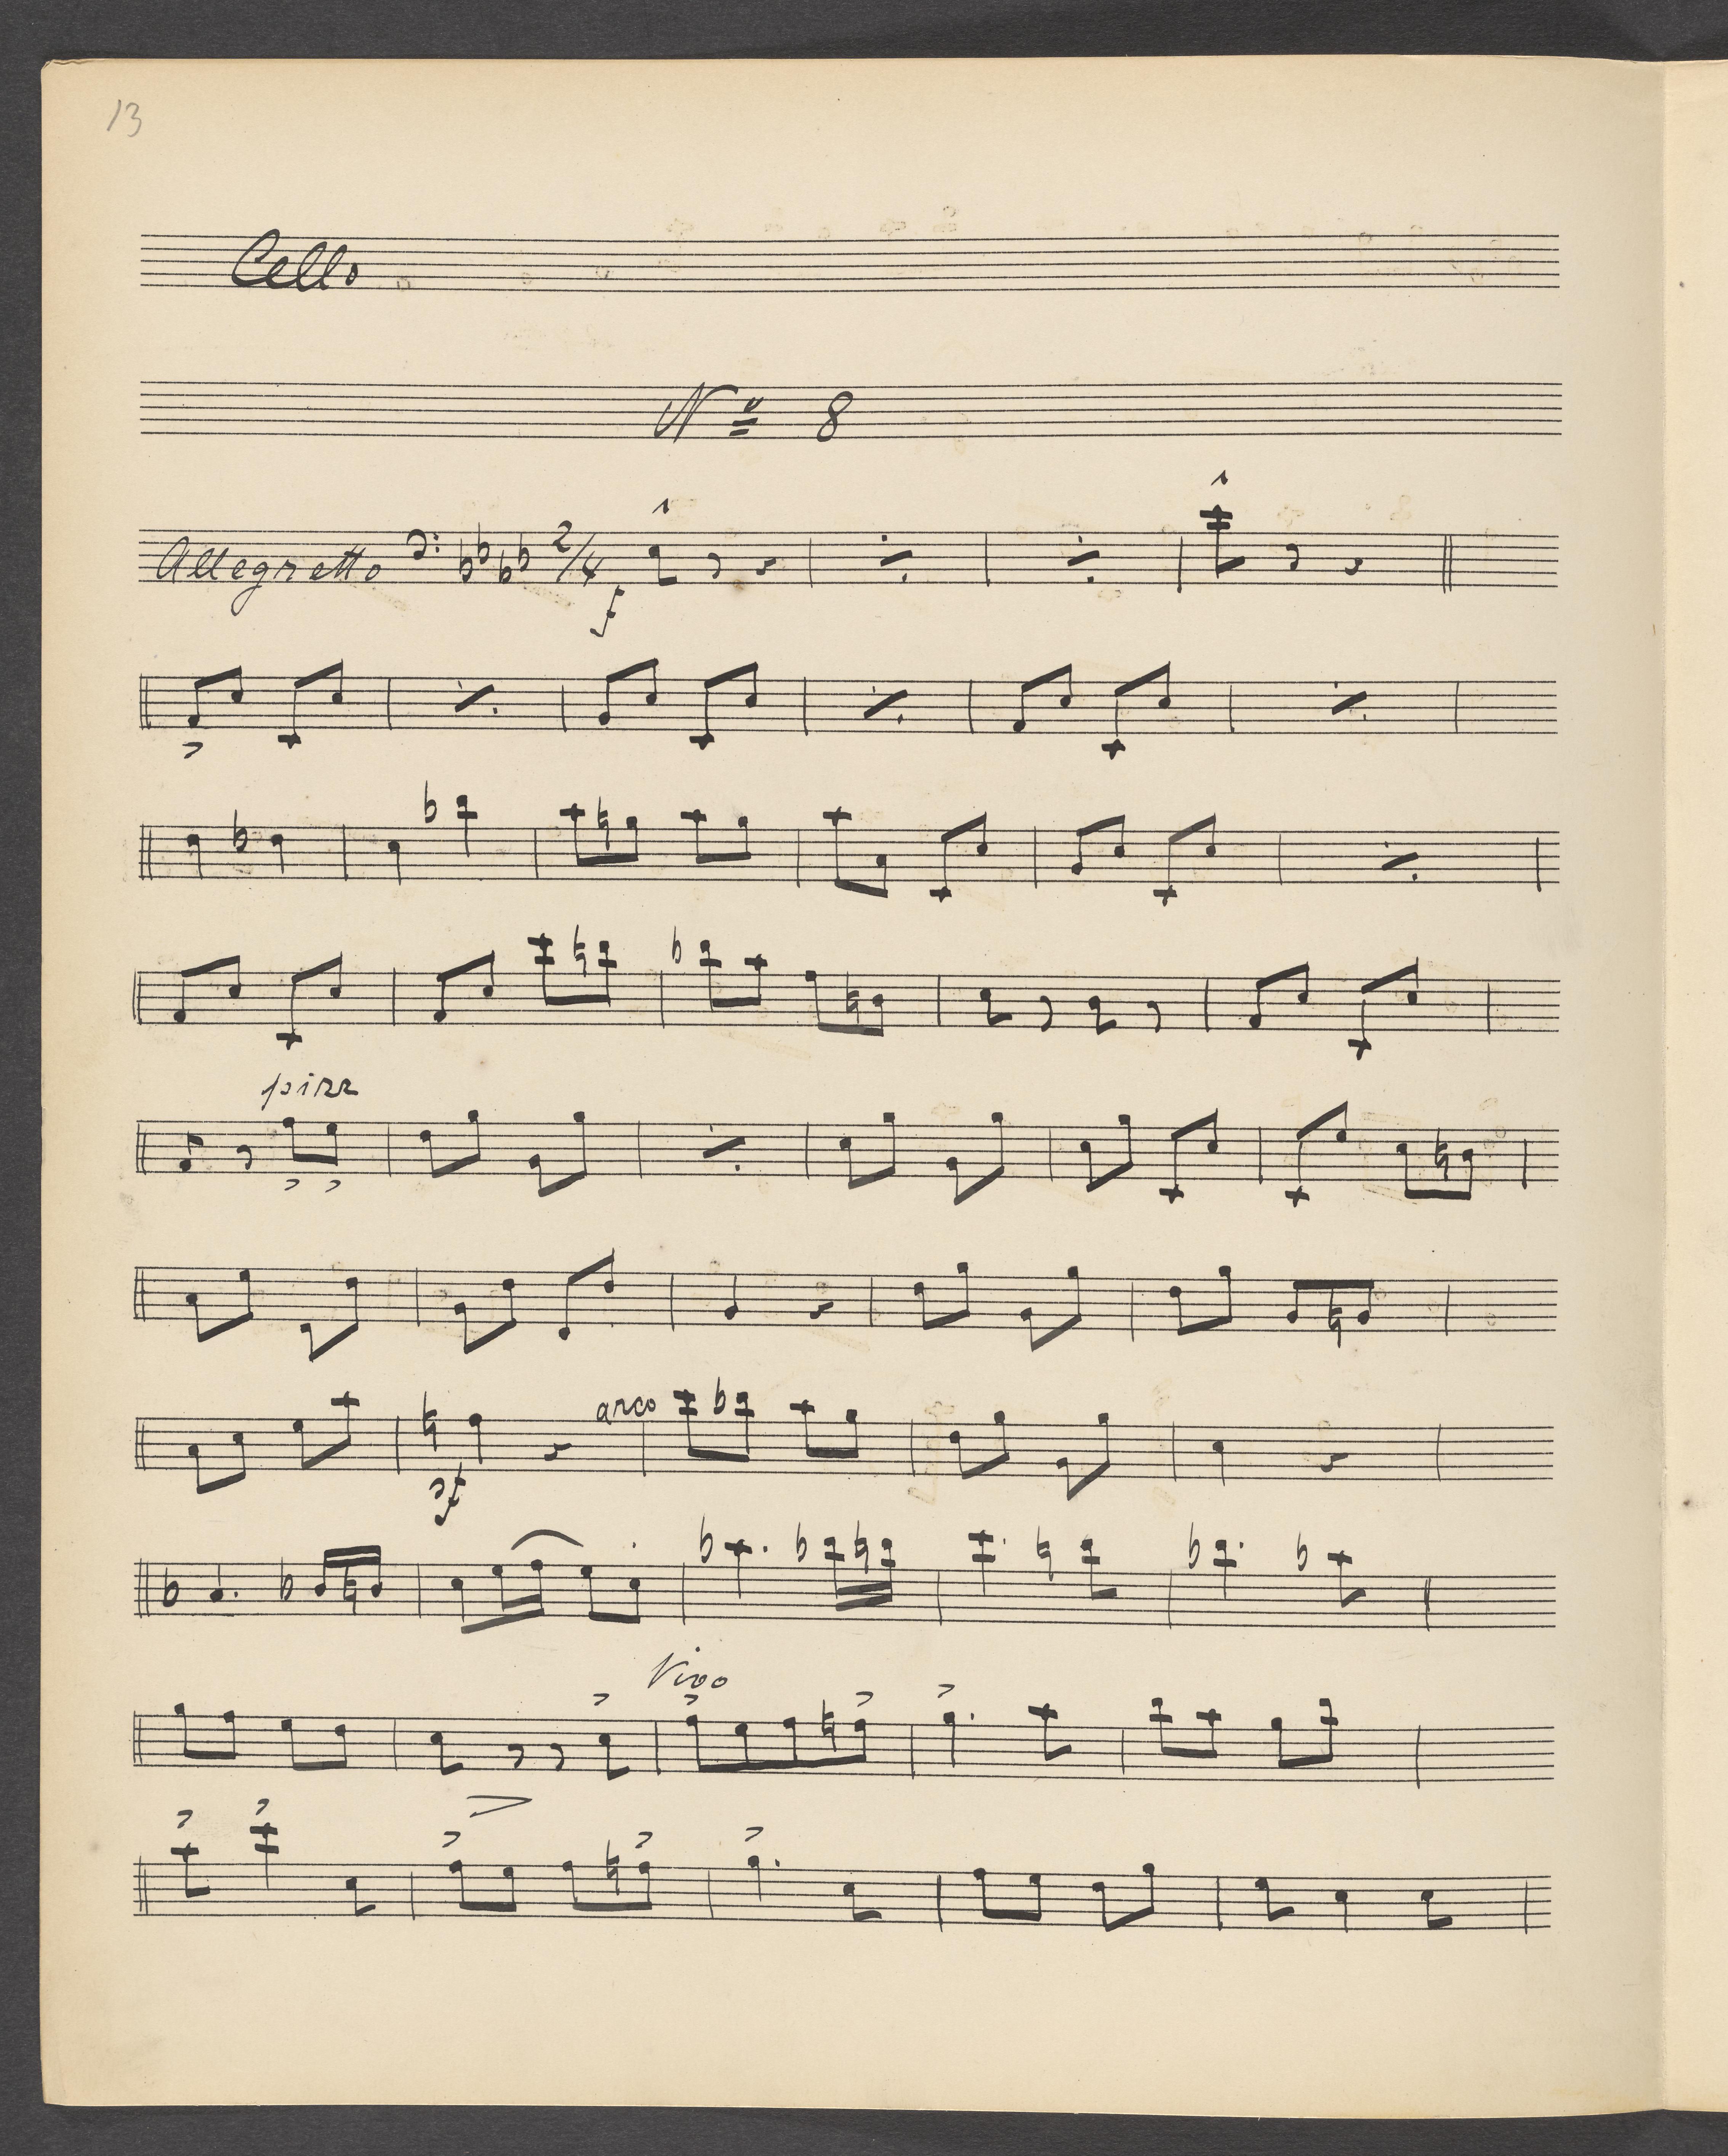 13
Cello
No 8
Allegretto 2/4
f
pizz
arco
sf
Vivo